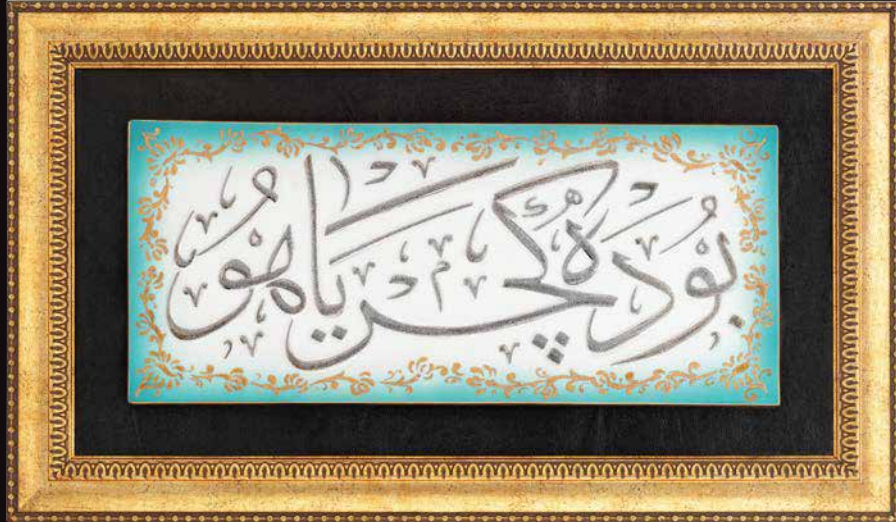 بُودَه كچر يا هُو